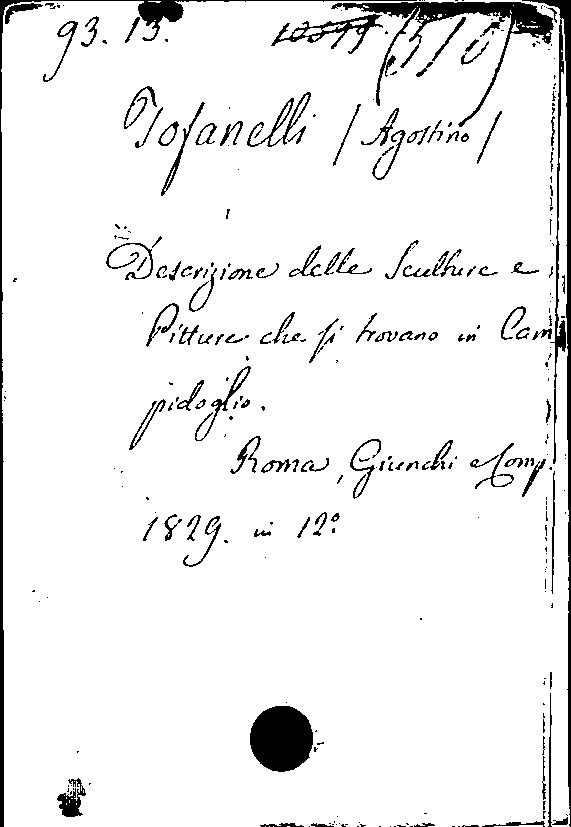 93. 13. 10577 (510)
Tofanelli / Agostino /
Descrizione delle Sculture e
Pitture che si trovano in Cam
pidoglio.
Roma, Giunchi e Comp.
1829. in 12º